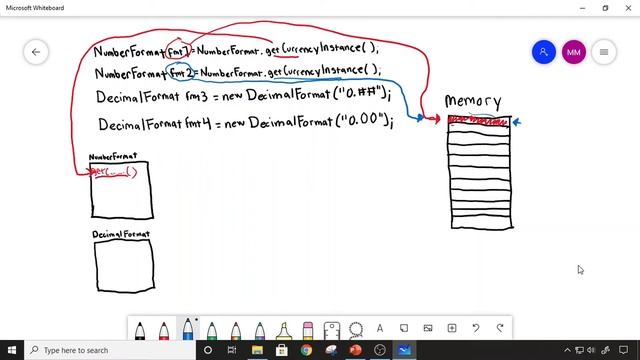 Microsoft Whiteboard
NumberFormat fmt1 = NumberFormat.getCurrencyInstance();
NumberFormat fmt2 = NumberFormat.getCurrencyInstance();
DecimalFormat fmt3 = new DecimalFormat("0.##");
DecimalFormat fmt4 = new DecimalFormat("0.00");
MM
memory
NumberFormat
get(......()
DecimalFormat
A
Type here to search